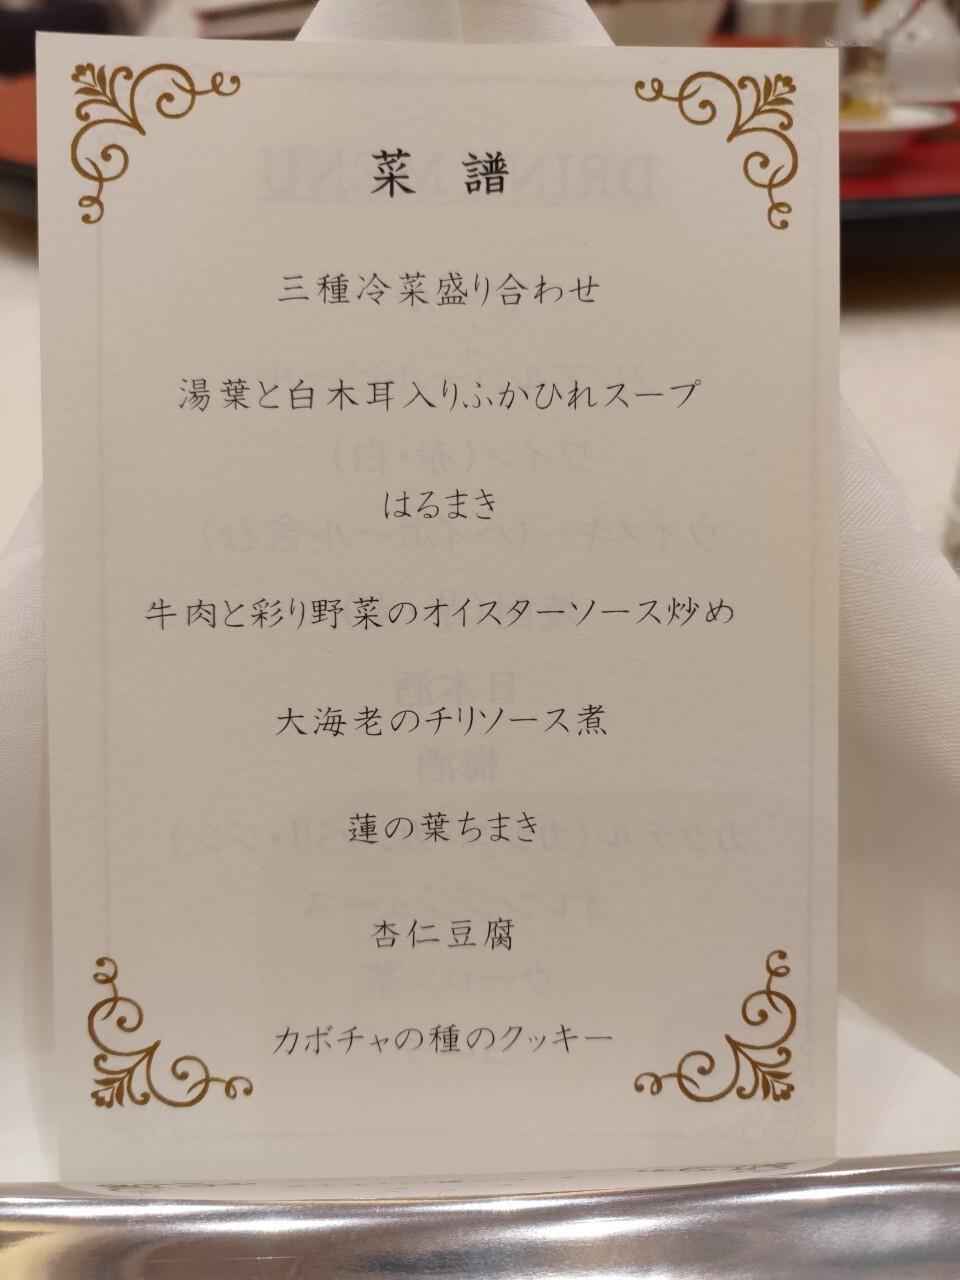 菜 譜
三種冷菜盛り合わせ
湯葉と白木耳入りふかひれスープ
はるまき
牛肉と彩り野菜のオイスターソース炒め
大海老のチリソース煮
蓮の葉ちまき
杏仁豆腐
カボチャの種のクッキー